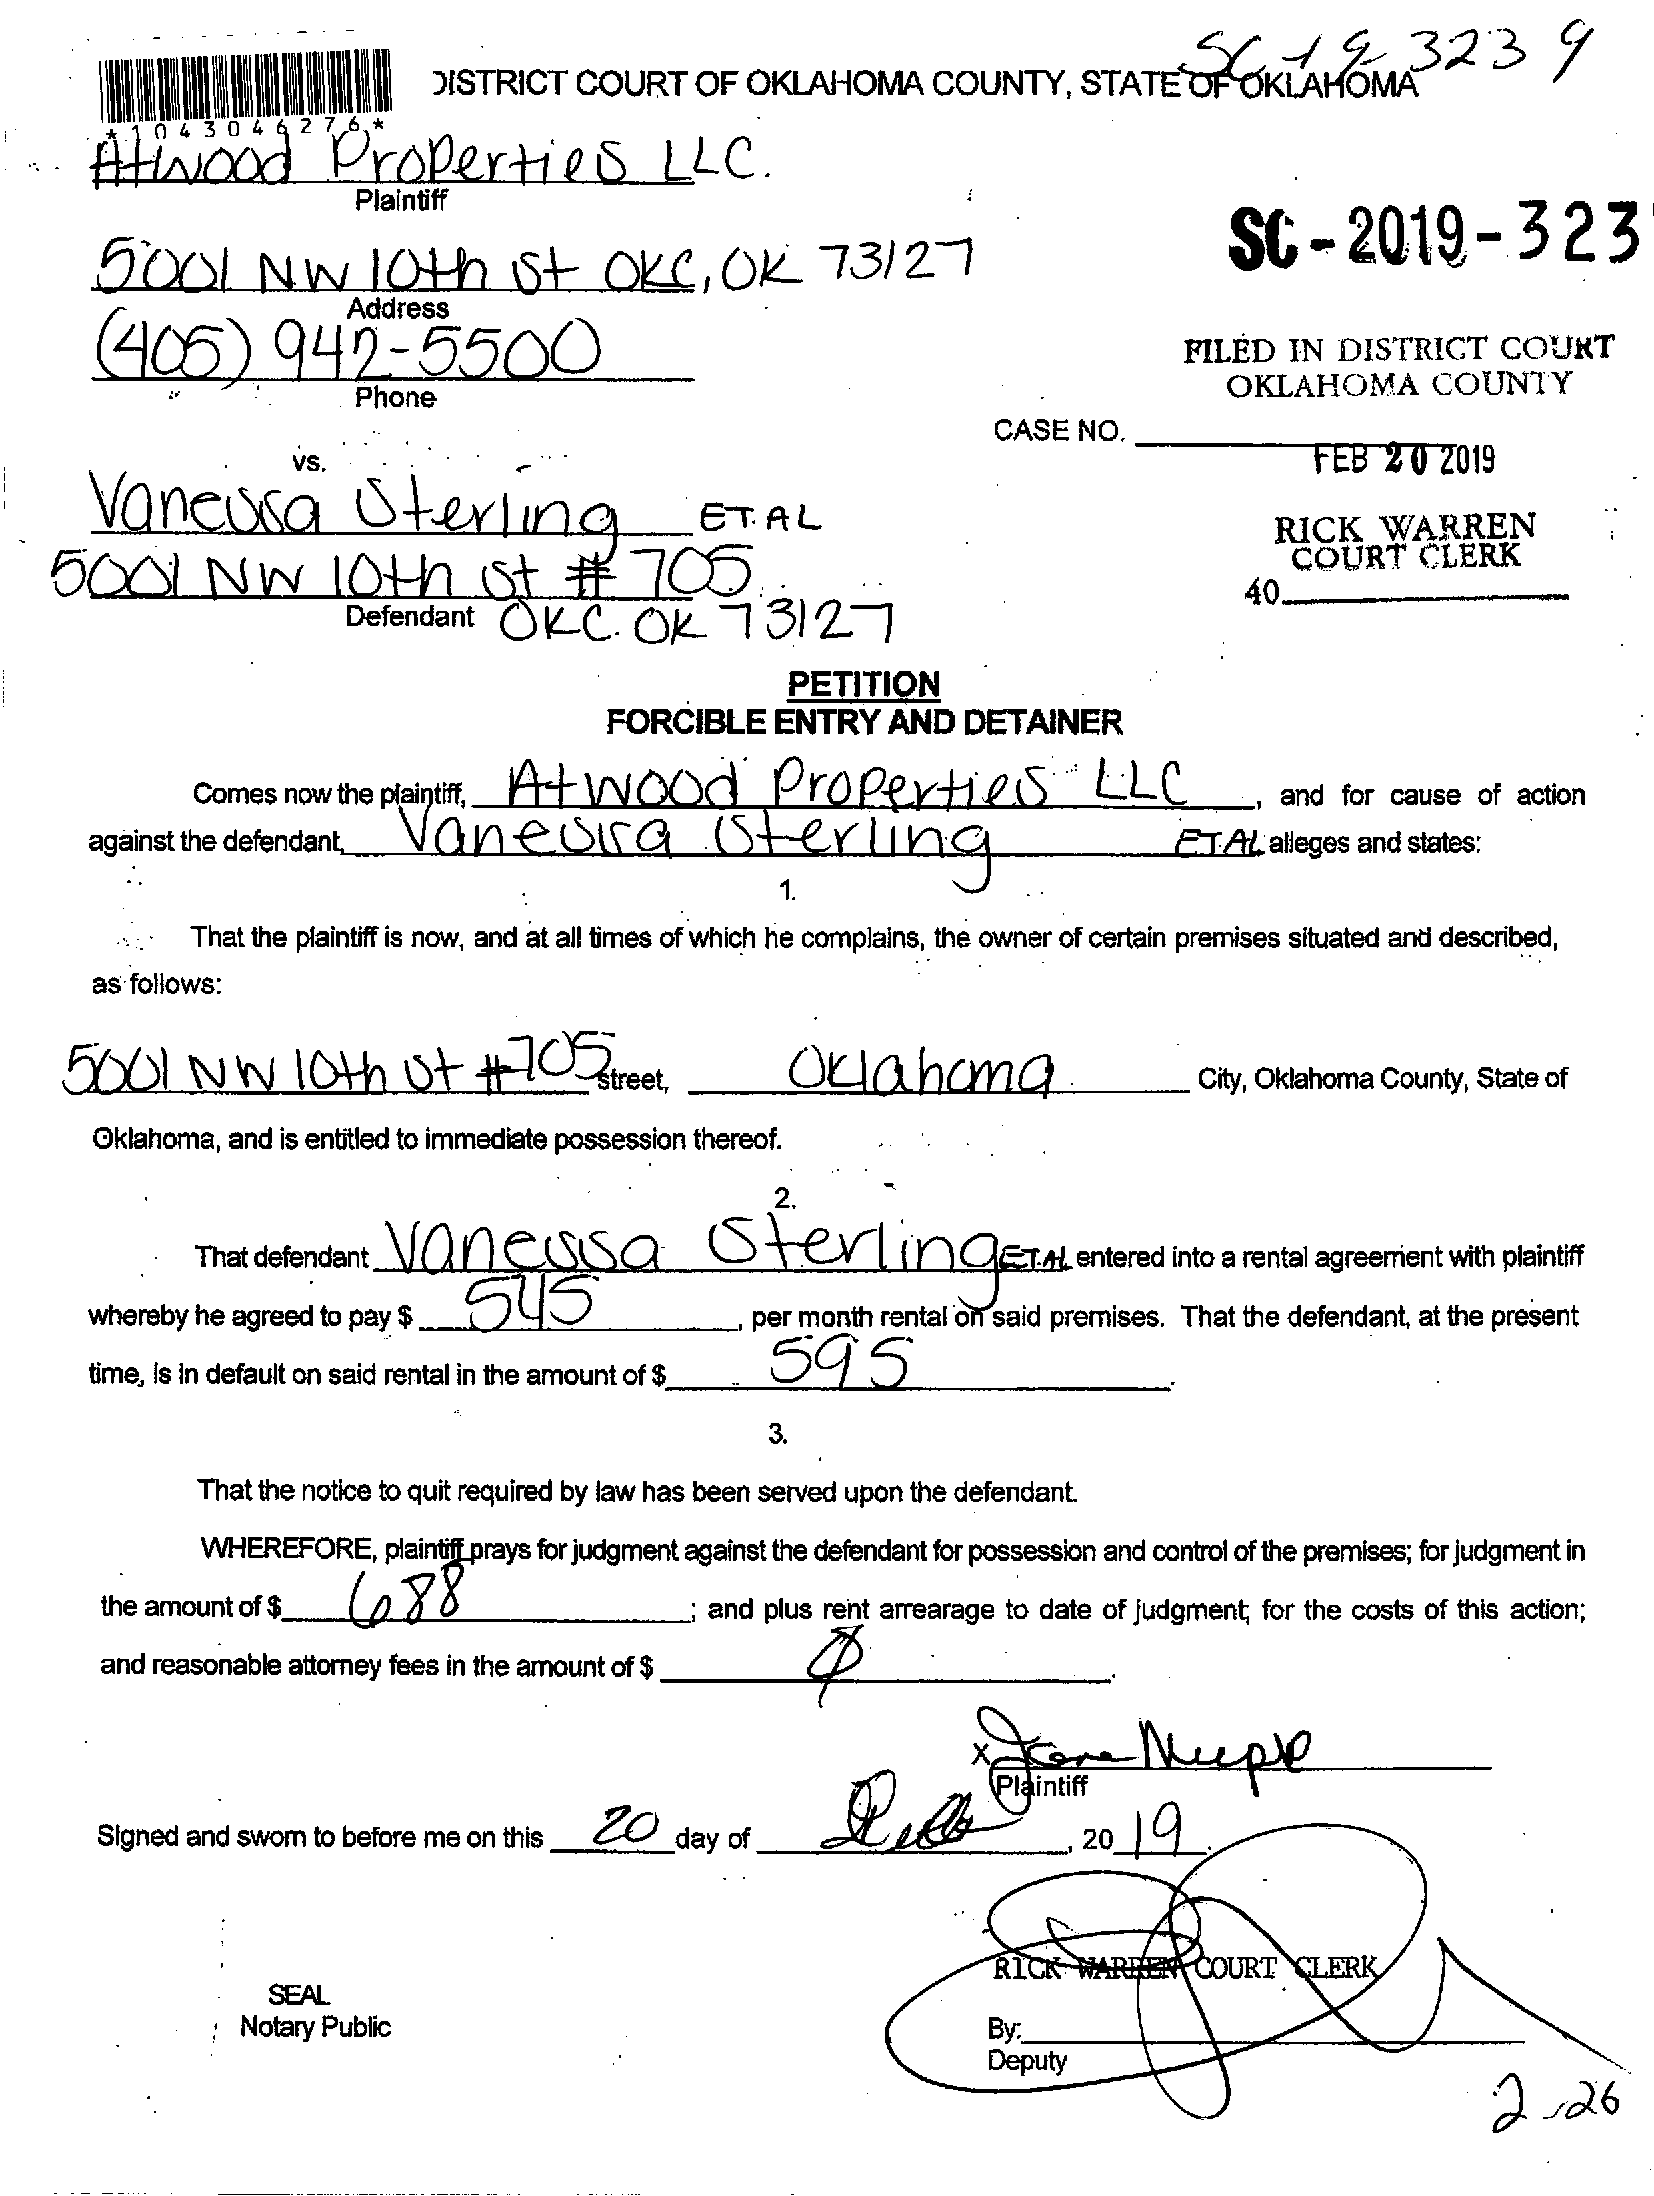 SC-19-3239
DISTRICT COURT OF OKLAHOMA COUNTY, STATE OF OKLAHOMA
*1043046276*
Atwood Properties LLC.
Plaintiff
SC-2019-323
5001 NW 10th St OKC, OK 73127
Address
(405) 942-5500
Phone
FILED IN DISTRICT COURT
OKLAHOMA COUNTY
CASE NO.
FEB 20 2019
vs.
Vanessa Sterling ET.AL
RICK WARREN
COURT CLERK
40
5001 NW 10th St # 705
Defendant OKC. OK 73127
PETITION
FORCIBLE ENTRY AND DETAINER
Comes now the plaintiff, Atwood Properties LLC, and for cause of action
against the defendant, Vanessa Sterling ET.AL alleges and states:
1.
That the plaintiff is now, and at all times of which he complains, the owner of certain premises situated and described,
as follows:
5001 NW 10th St #705 street, Oklahoma City, Oklahoma County, State of
Oklahoma, and is entitled to immediate possession thereof.
2.
That defendant Vanessa Sterling ET.AL entered into a rental agreement with plaintiff
whereby he agreed to pay $ 545, per month rental on said premises. That the defendant, at the present
time, is in default on said rental in the amount of $ 595.
3.
That the notice to quit required by law has been served upon the defendant.
WHEREFORE, plaintiff prays for judgment against the defendant for possession and control of the premises; for judgment in
the amount of $ 688; and plus rent arrearage to date of judgment; for the costs of this action;
and reasonable attorney fees in the amount of $ .
x
Plaintiff
Signed and sworn to before me on this 20 day of , 2019.
RICK WARREN COURT CLERK
SEAL
Notary Public
By:
Deputy
2-26